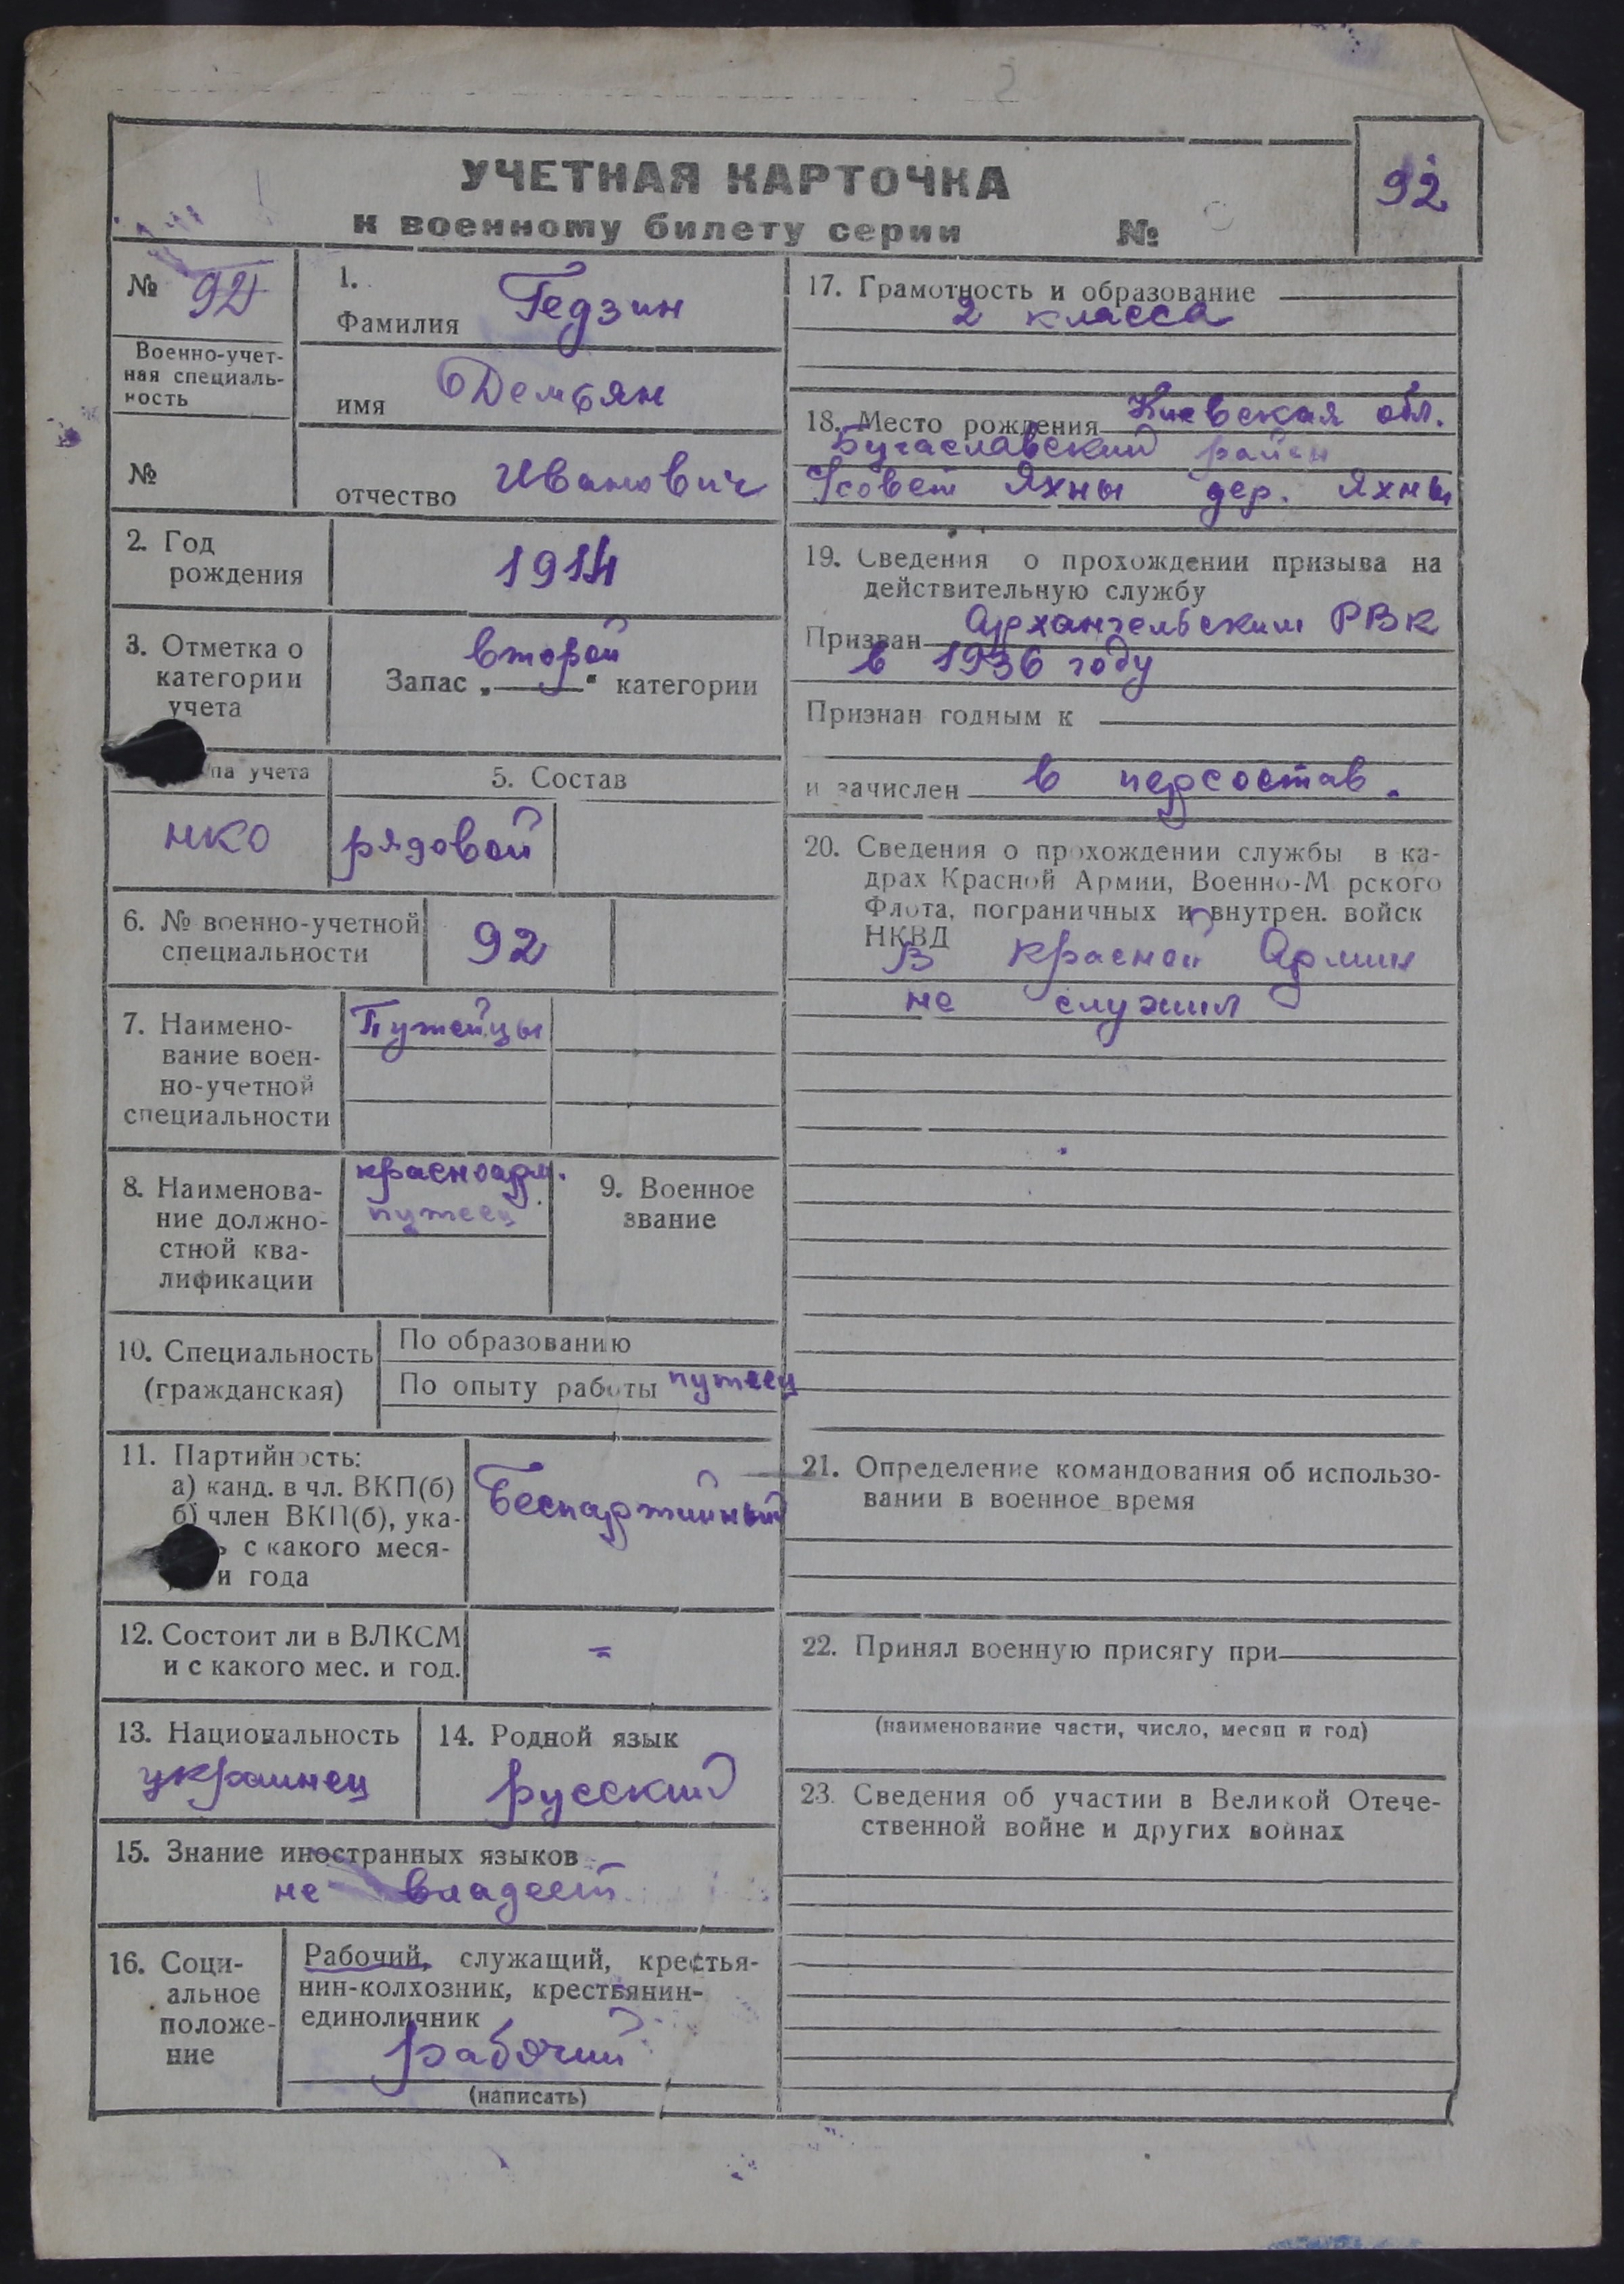 УЧЕТНАЯ КАРТОЧКА
к военному билету серии №
92
№ 92
Военно-учет-
ная специаль-
ность
№
1.
Фамилия Гедзин
имя Демьян
отчество Иванович
2. Год
рождения
1914
3. Отметка о
категории
учета
второй
Запас „ “ категории
па учета
5. Состав
НКО
рядовой
6. № военно-учетной
специальности
92
7. Наимено-
вание воен-
но-учетной
специальности
Путейцы
8. Наименова-
ние должно-
стной ква-
лификации
красноарм.
путеец
9. Военное
звание
10. Специальность
(гражданская)
По образованию
По опыту работы путеец
11. Партийность:
а) канд. в чл. ВКП(б)
б) член ВКП(б), ука-
ь с какого меся-
и года
беспартийный
12. Состоит ли в ВЛКСМ
и с какого мес. и год.
=
13. Национальность
украинец
14. Родной язык
русский
15. Знание иностранных языков
не владеет
16. Соци-
альное
положе-
ние
Рабочий, служащий, крестья-
нин-колхозник, крестьянин-
единоличник
рабочий
(написать)
17. Грамотность и образование
2 класса
18. Место рождения Киевская обл.
Бугаславский район
с/совет Яхны дер. Яхны
19. Сведения о прохождении призыва на
действительную службу
Призван Архангельским РВК
в 1936 году
Признан годным к
и зачислен в персостав.
20. Сведения о прохождении службы в ка-
драх Красной Армии, Военно-М рского
Флота, пограничных и внутрен. войск
НКВД
В Красной Армии
не служил
21. Определение командования об использо-
вании в военное время
22. Принял военную присягу при
(наименование части, число, месяц и год)
23. Сведения об участии в Великой Отече-
ственной войне и других войнах